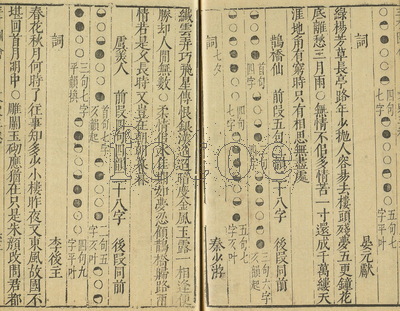 詞　晏元獻
綠楊芳草長亭路年少拋人容易去樓頭殘夢五更鐘花
底離愁三月雨○無情不似多情苦一寸還成千萬縷天
涯地角有窮時只有相思無盡處
鵲橋仙　前段五句　韻二十八字　後段同前
詞　七夕　秦少游
纖雲弄巧飛星傳恨銀漢迢迢暗度金風玉露一相逢便
勝却人間無數○柔情似水佳期如夢忍顧鵲橋歸路兩
情若是久長時又豈在朝朝暮暮
虞美人　前段四句四韻二十八字　後段同前
首句七字仄韻起　二句五字仄叶
三句七字平韻換　四句九字平叶
詞　李後主
春花秋月何時了往事知多少小樓昨夜又東風故國不
堪回首月明中○雕闌玉砌應猶在只是朱顏改問君都